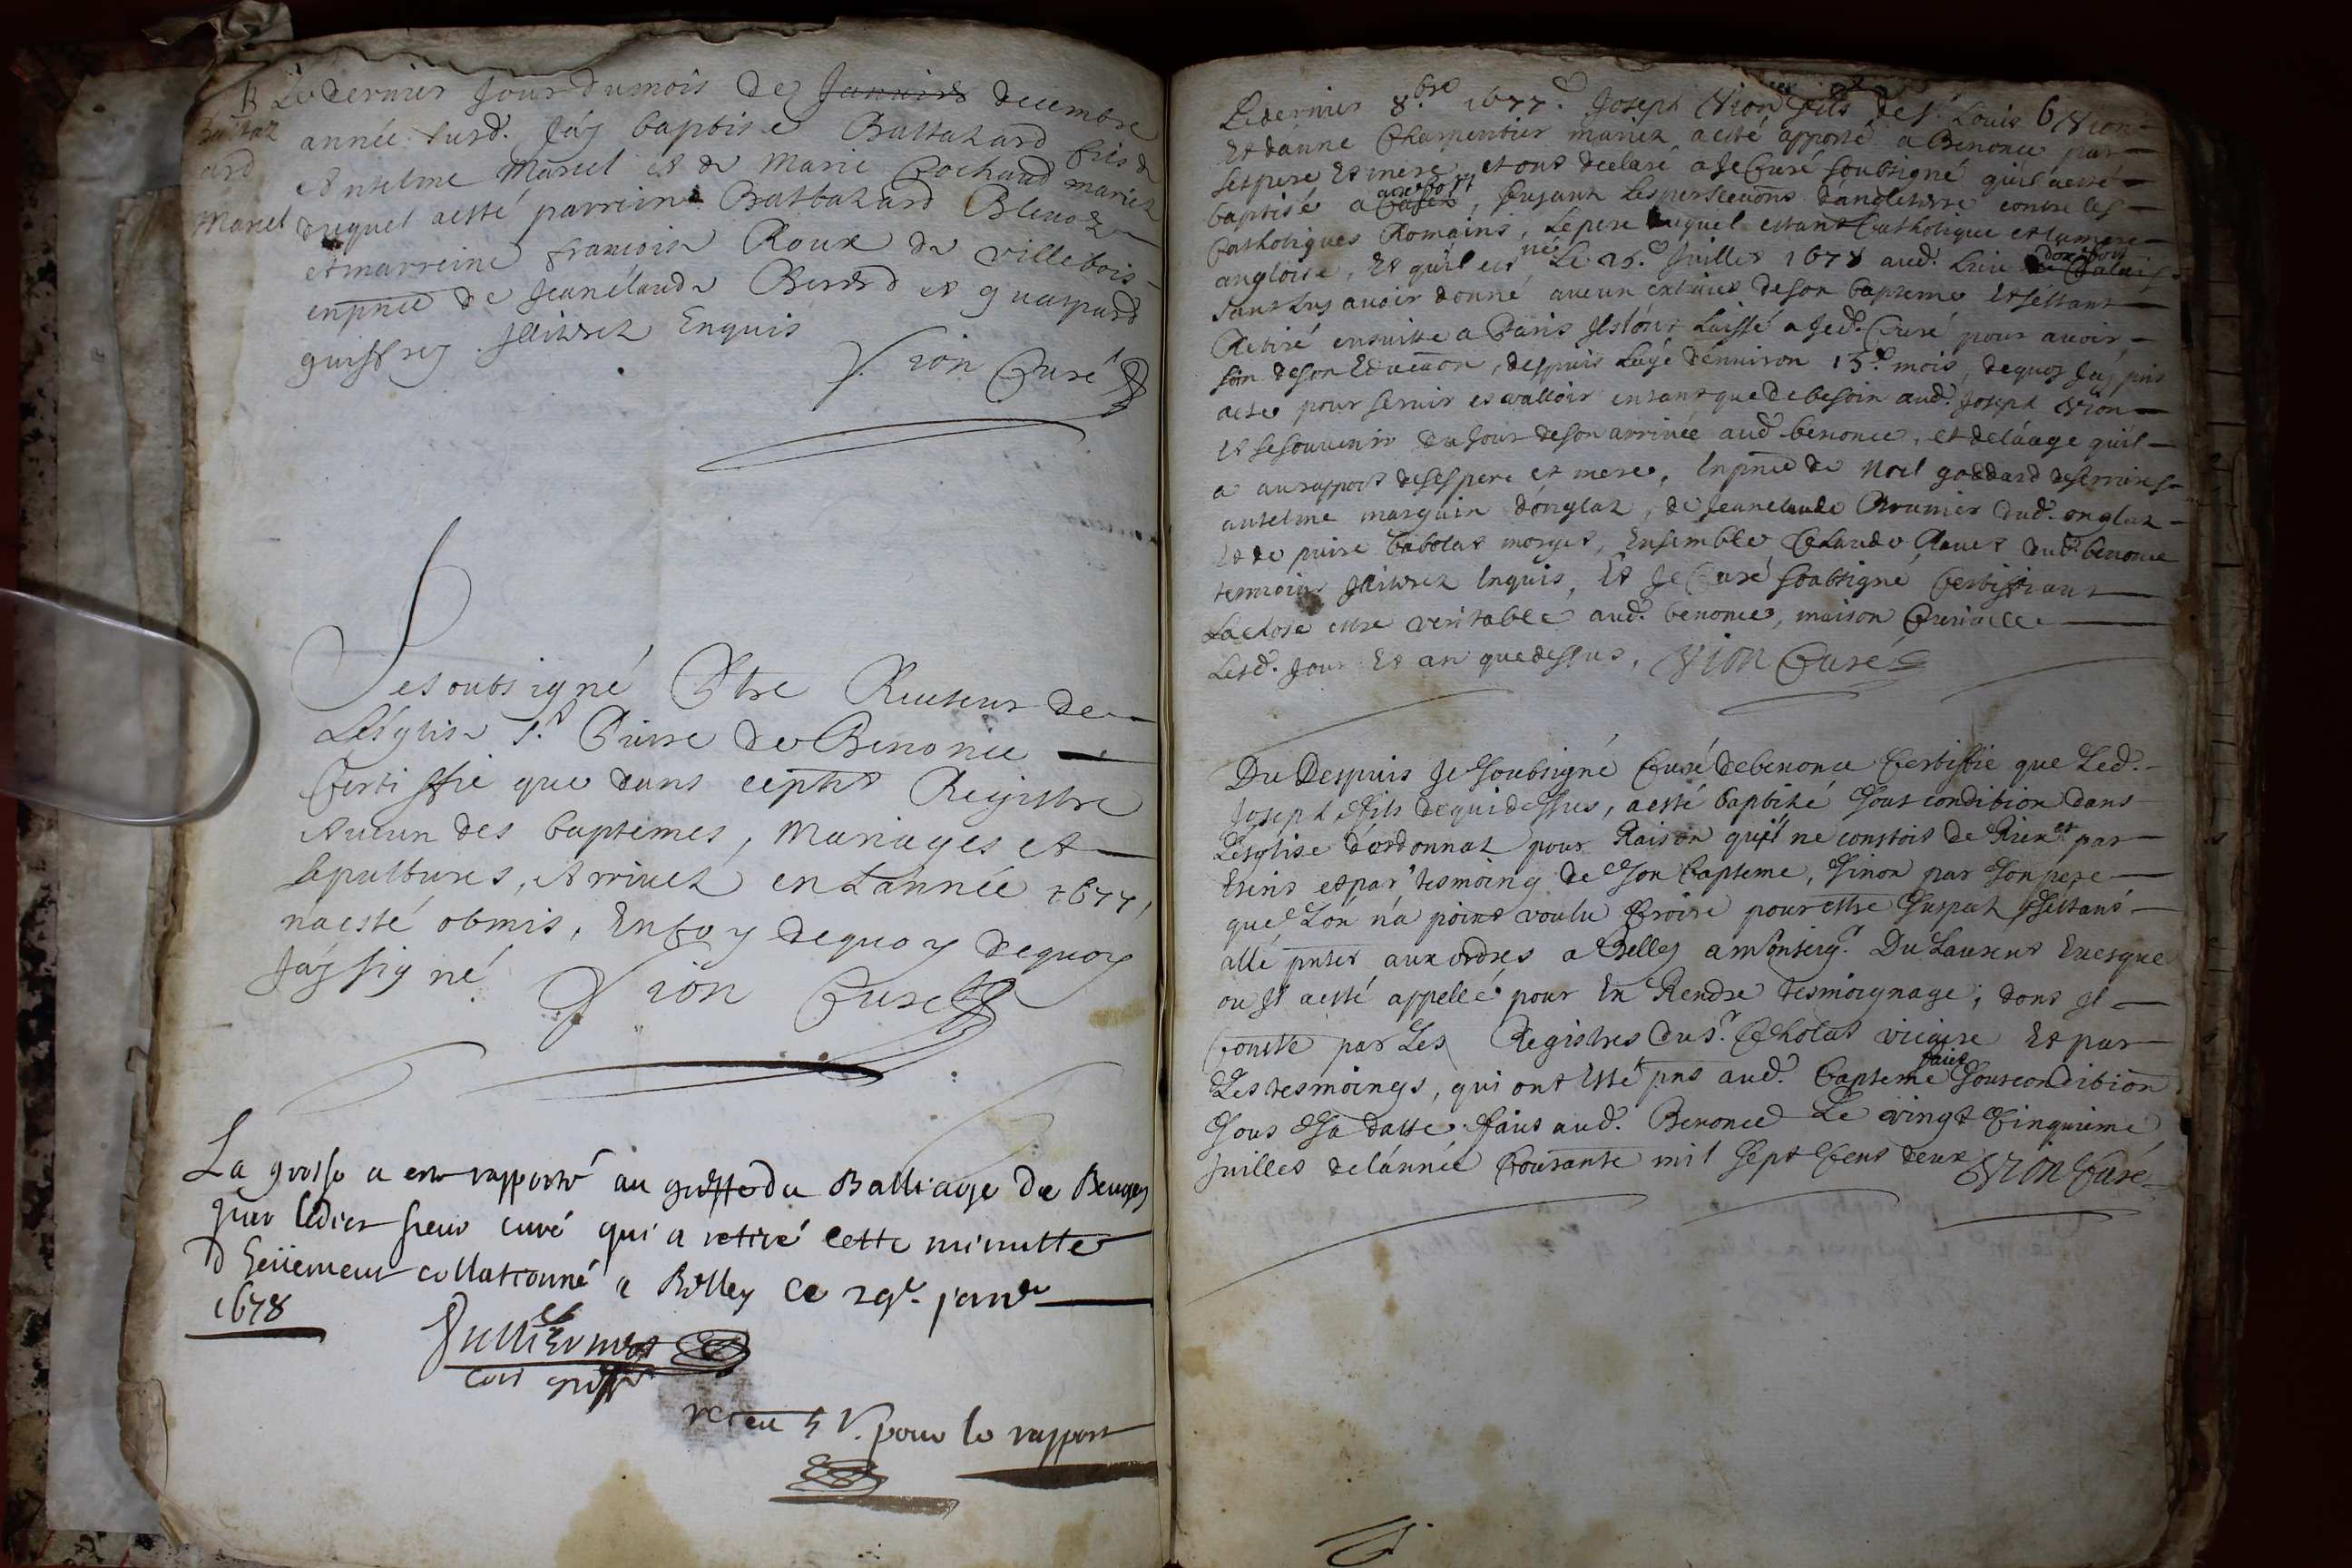 B
Baltaz
ard
Marcel
Le dernier Jour du mois de Januier decembre
année susd. Jáy baptisé Baltazard fils de
Antelme Marcel et de Marie Cochaud mariez
duquel a esté parrein Baltazard Blenoz
et marreine francoise Roux de villebois
en pnce de Jean claude Berard et guaspard
guiffrey illitrez Enquis
Vion Curé
Je soubsigné Ptre Recteur de
Léglise St. Pierre de Benonce
Certiffie que dans cepnt Registre
Aucun des baptemes, Mariages et
sepultures, Arriuez en Lannée 1677,
na esté obmis, En foy dequoy dequoy
Jáy signé Vion Curé
La grosse a este rapporté au greffe du Balliage de Beugey
par ledict sieur curé qui a retiré cette minutte
dheüement collationné a Belley ce 29e janv
1678
receu 5 s. pour le rapport
Le dernier 8.bre 1677. Joseph Vion fils de sr. Louis Vion 6
Et d'anne Charpentier mariez a esté apporté a Benonce par
ses pere Et mere, et ont declaré a Je Curé soubsigné qu'il a esté
baptisé a Calez, fuyant Les persecuons d'angleterre contre les
Catholiques Romains, Le pere Luquel estant Catholique et la mere
angloise, Et qu'il est né Le 25.e Juillet 1676 aud. Lieu de Calais
sans Luy auoir donné aucun extraict de son bapteme Et s'estant
Retiré ensuitte a Paris Ils lónt Laissé a Jed. Curé pour auoir
soin de son Educaon, despuis Láge dénuiron 15.e mois, dequoy Jáy pris
acte pour seruir et valloir en tant que de besoin aud. Joseph Vion
Et se souuenir du Jour de son arriuée aud. benonce, et de láage qu'il
a au rapport de ses pere et mere, En pnce de Noel goddard de serrieres
antelme marguin dónglaz, de Jean claude Brunier dud. onglaz
Et de pierre babolat morges, Ensemble Claude Rauet dud. benonce
temoins illitrez Enquis, Et Je Curé soubsigné Certiffiant
La chose estre veritable aud. benonce, maison Curialle
Lesd. Jour Et an que dessus, Vion Curé
Du Despuis Je soubsigné Curé de benonce Certiffie que Led.
Joseph fils de qui dessus, a esté baptizé sous condition dans
L'église dórdonnaz pour Raison qu'il ne constoit de Rien et par
Escris et par tesmoing de son bapteme, sinon par son pere
que Lon n'a point voulu Croire pour estre suspect s'estant
allé pnter aux ordres a Belley a Monseigr. Du Laurent Euesque
ou Il a esté appellé pour En Rendre tesmoignage; dont Il
Conste par Les Registres du sr. Cholat vicaire Et par
Les tesmoings, qui ont Esté pns aud. bapteme faict sous condition
sous sa datte. faict aud. Benonce Le vingt Cinquieme
Juillet de lánnée Courante mil sept Cens deux Vion Curé